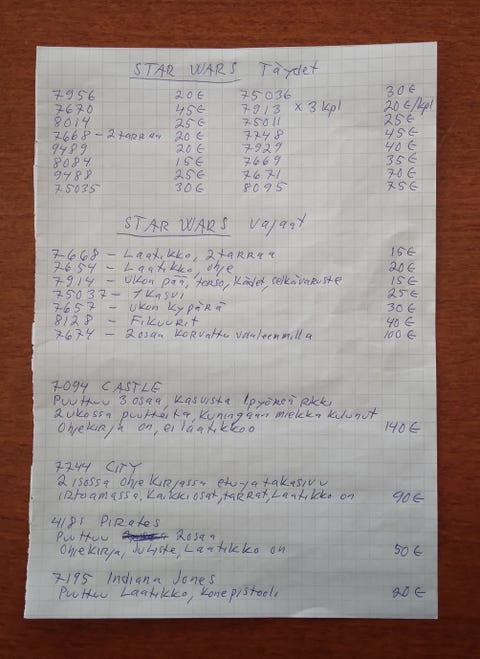 STAR WARS Täydet
7956 20€ 75036 30€
7670 45€ 7913 x 3kpl 20€/kpl
8014 25€ 75011 25€
7668 - 2 tarraa 20€ 7748 45€
9489 20€ 7929 40€
8084 15€ 7669 35€
9488 25€ 7671 70€
75035 30€ 8095 75€
STAR WARS vajaat
7668 - Laatikko, 2 tarraa 15€
7654 - Laatikko, ohje 20€
7914 - ukon pää, torso, kädet, selkävaruste 15€
75037 - 1 kasvi 25€
7657 - ukon kypärä 30€
8128 - Fikuurit 40€
7674 - 2 osaa korvattu vaaleemmilla 100€
7094 CASTLE
Puuttuu 3 osaa, kasvista 1 pyörsä rikki
2 ukossa puutteita, kuninkaan miekka kulunut
Ohjekirja on, ei laatikkoo 140€
7744 CITY
2 isossa ohjekirjassa etu-ja takasivu
irtoamassa, kaikki osat, tarrat, Laatikko on 90€
4181 Pirates
Puuttuu 2 osaa
Ohjekirja, Juliste, Laatikko on 50€
7195 Indiana Jones
Puuttuu Laatikko, konepistooli 20€